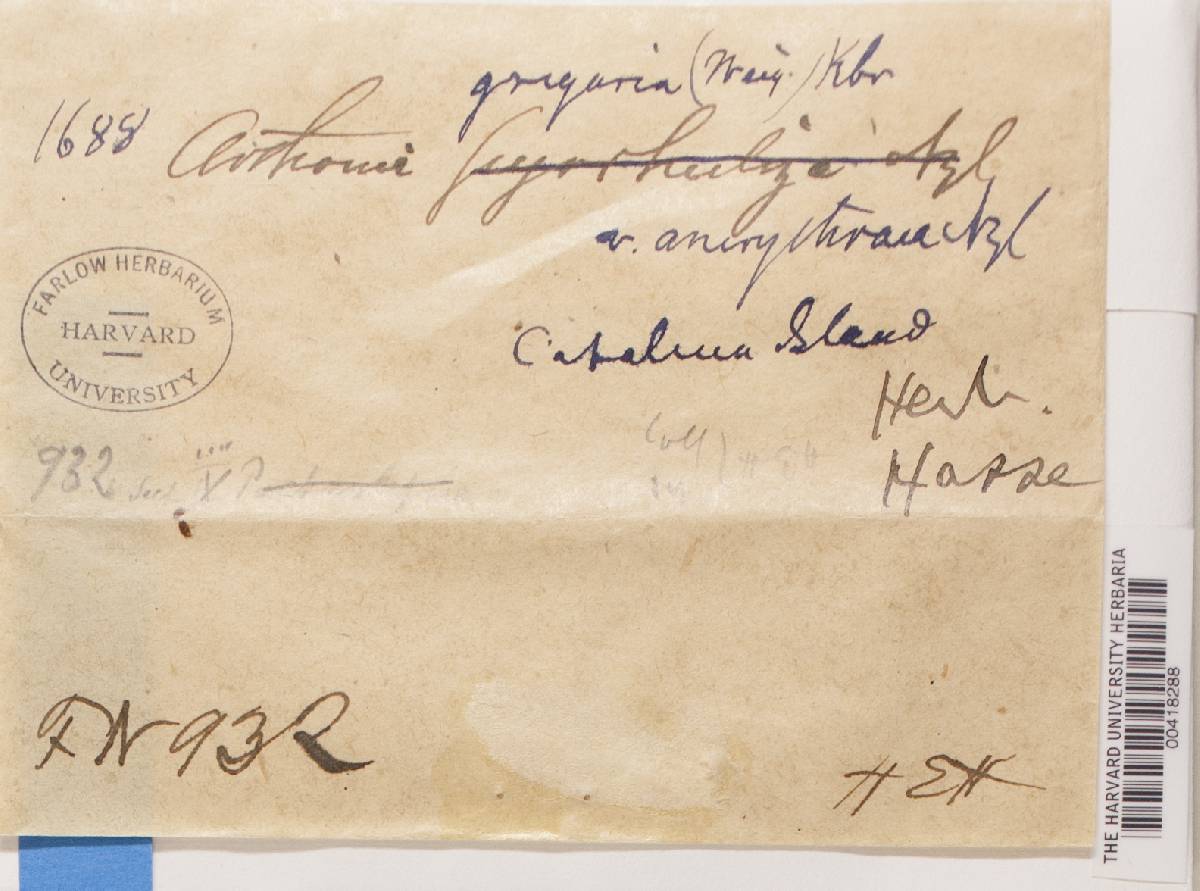 gregaria (Weig.) Kbr
1688 Arthonia Nyl
v. anerythraea Nyl
FARLOW HERBARIUM
HARVARD
UNIVERSITY
Catalina Island
Herb.
Hasse
932
FN 932
HEH
THE HARVARD UNIVERSITY HERBARIA
00418288